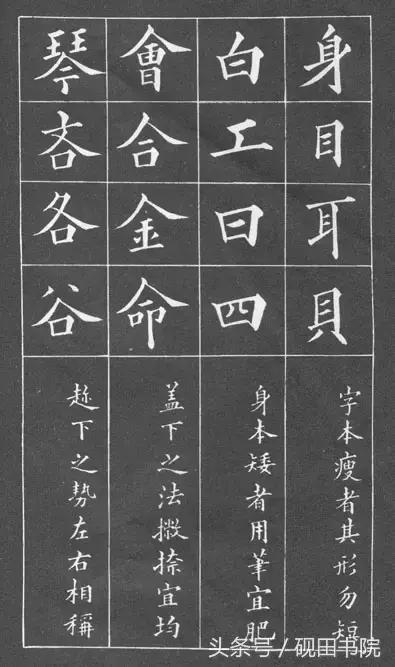 身目耳貝
字本瘦者其形勿短
白工曰四
身本矮者用筆宜肥
會合金命
盖下之法撇捺宜均
琴吝各谷
趂下之勢左右相稱
头条号/砚田书院